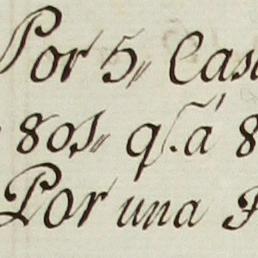 Por 5,, Cas
80s,, q.s á 8
Por una F